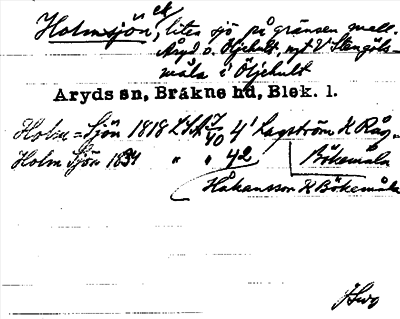 Holmsjön, liten sjö på gränsen mell.
Aryd o. Öljehult, nyt V Stengöls-
måla i Öljehult
Aryds sn, Bräkne hd, Blek. l.
Holm=Sjön 1818 LSA 4' Lagström K Råg-
Holm Sjön 1834 " " 42 Bökemåla
Håkansson K Bökemåla